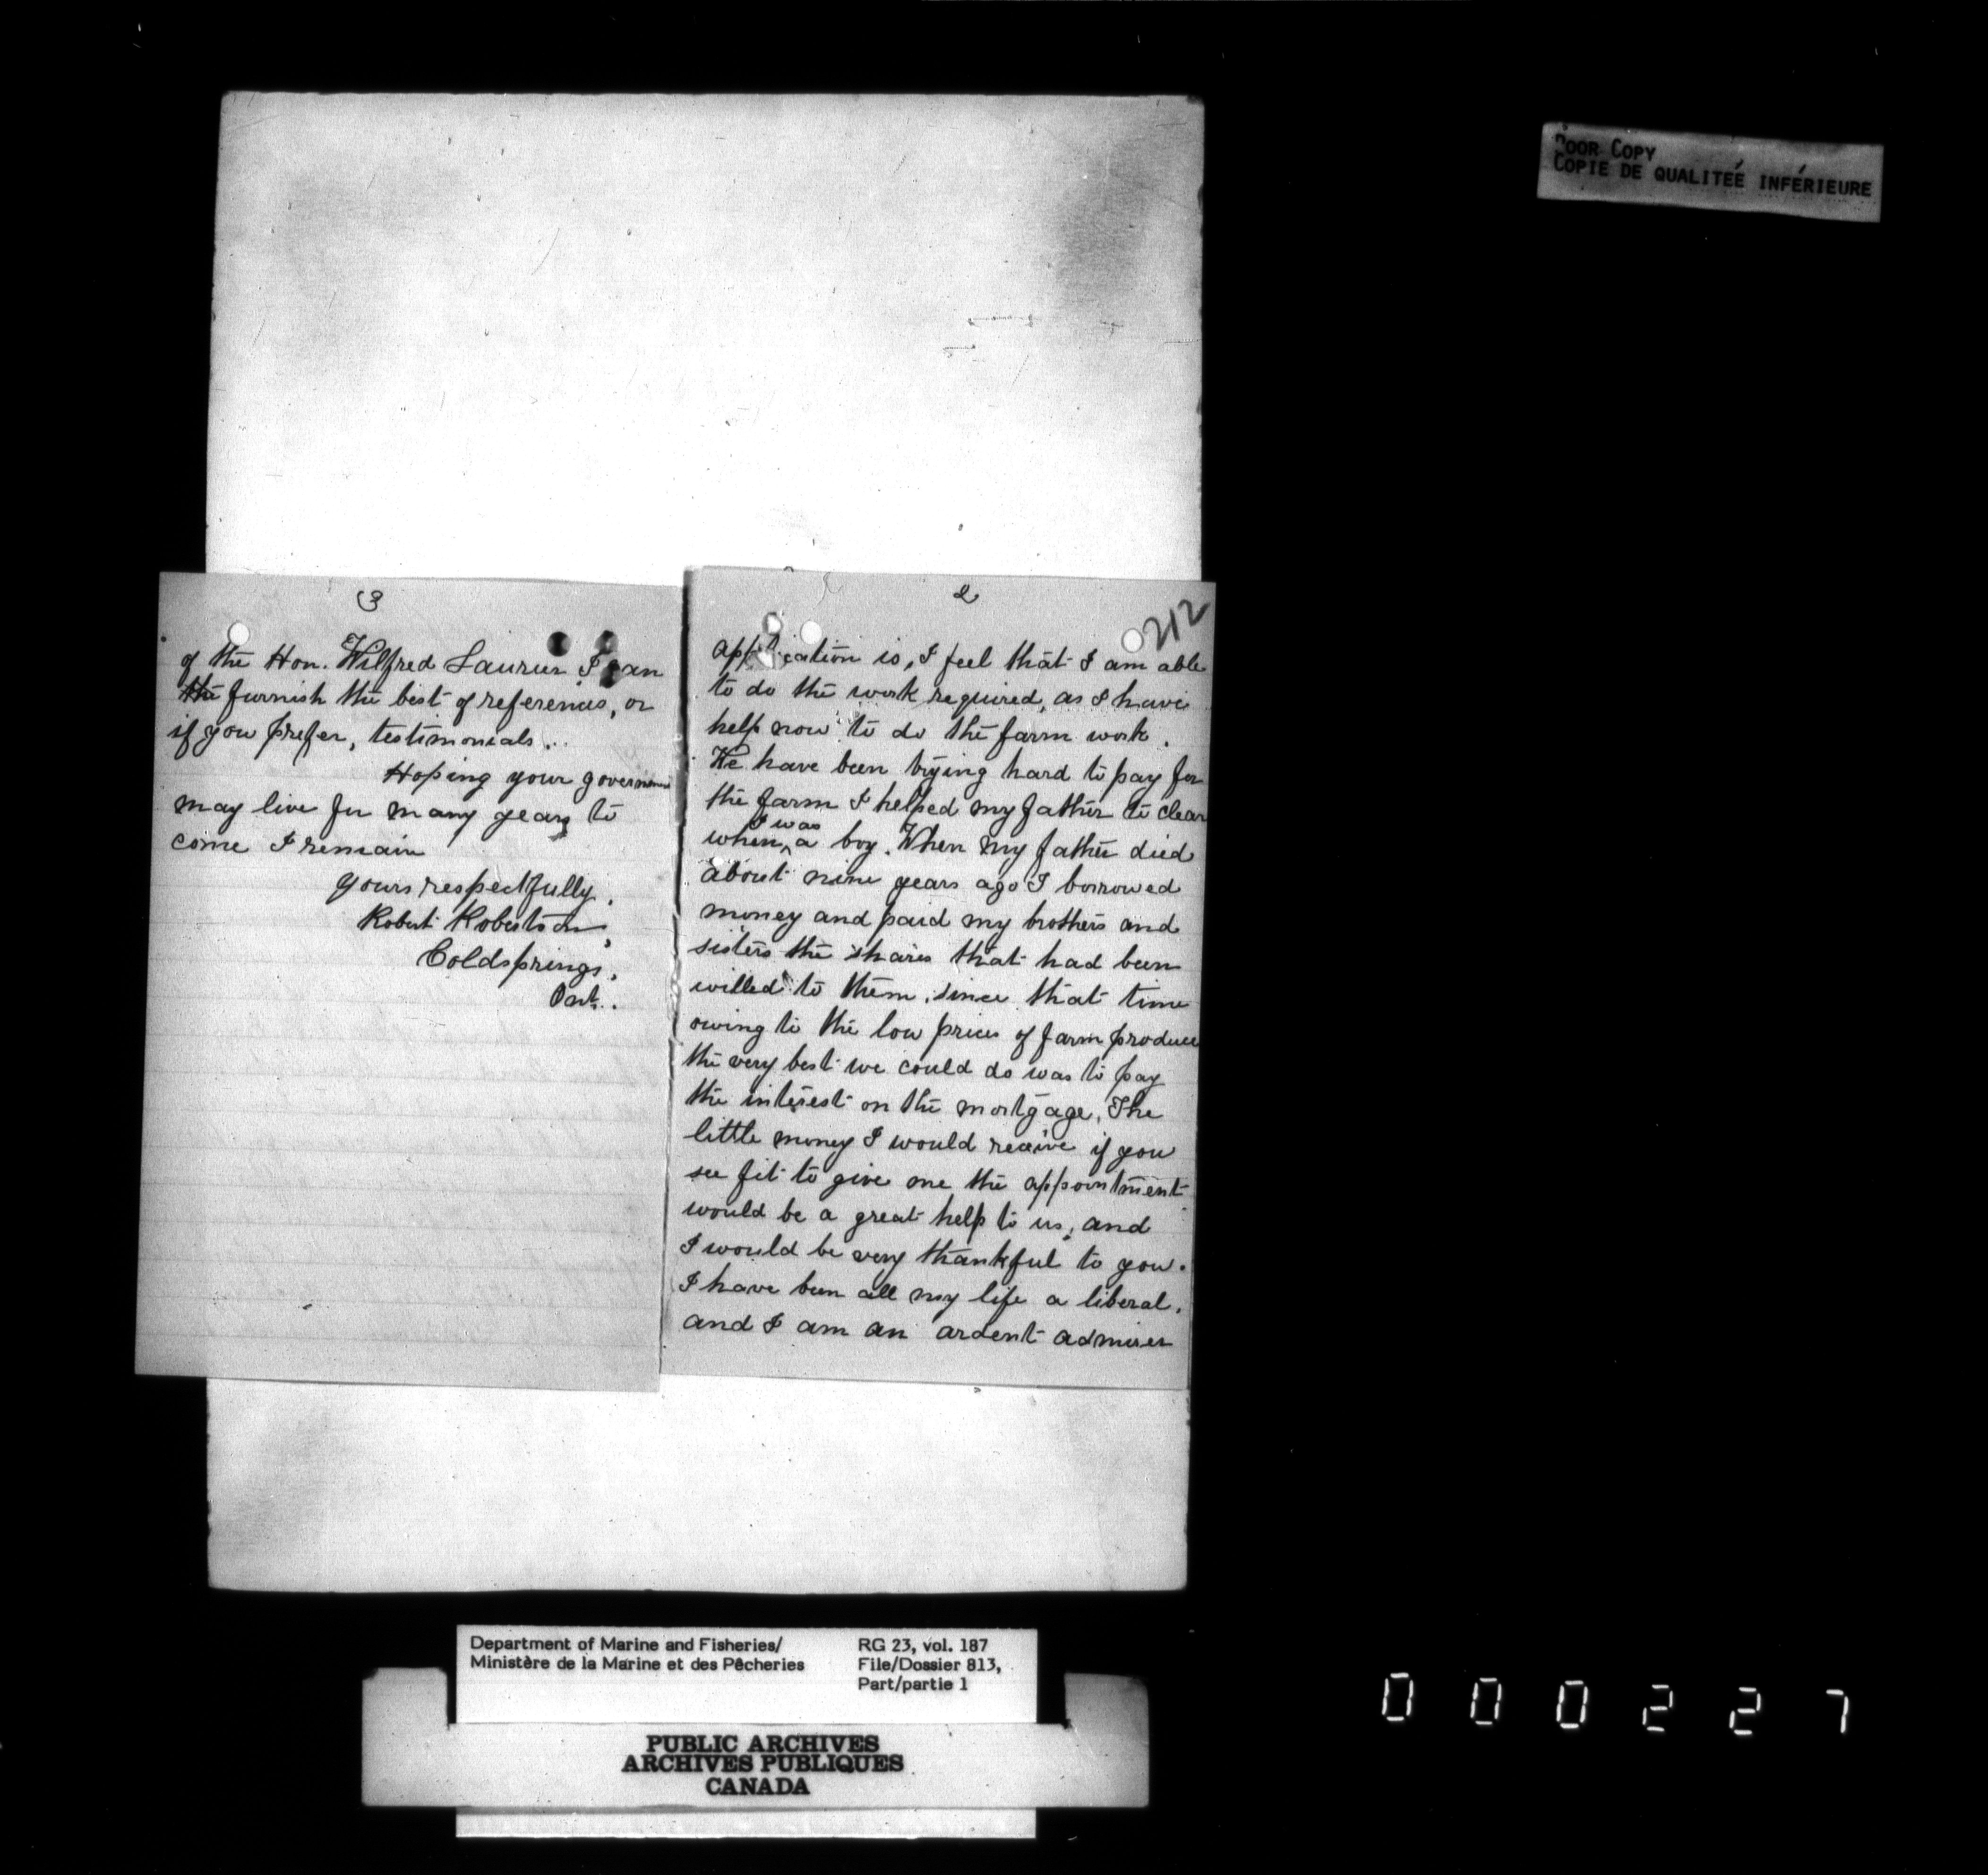 POOR COPY
COPIE DE QUALITEÉ INFÉRIEURE
3
of the Hon. Wilfred Laurier I can
the furnish the best of references, or
if you prefer, testimonials.
Hoping your government
may live for many years to
come I remain
yours respectfully,
Robert Robertson,
Coldsprings,
Ont.
2
212
application is, I feel that I am able
to do the work required, as I have
help now to do the farm work.
We have been trying hard to pay for
the farm I helped my father to clear
when I was a boy. When my father died
about nine years ago I borrowed
money and paid my brothers and
sisters the shares that had been
willed to them, since that time
owing to the low prices of farm produce
the very best we could do was to pay
the interest on the mortgage, The
little money I would receive if you
see fit to give me the appointment
would be a great help to us, and
I would be very thankful to you.
I have been all my life a liberal,
and I am an ardent admirer
Department of Marine and Fisheries/
Ministère de la Marine et des Pêcheries
RG 23, vol. 187
File/Dossier 813,
Part/partie 1
PUBLIC ARCHIVES
ARCHIVES PUBLIQUES
CANADA
000227